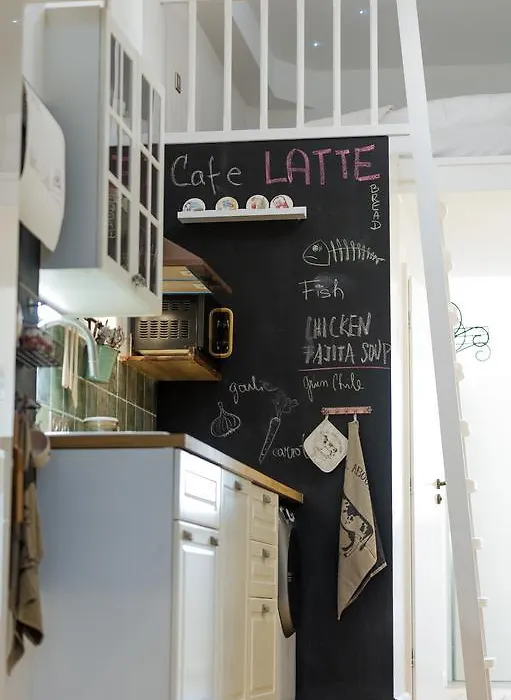 Cafe LATTE
BREAD
Fish
CHICKEN
FAJITA SOUP
garlic
Green Chile
carrot